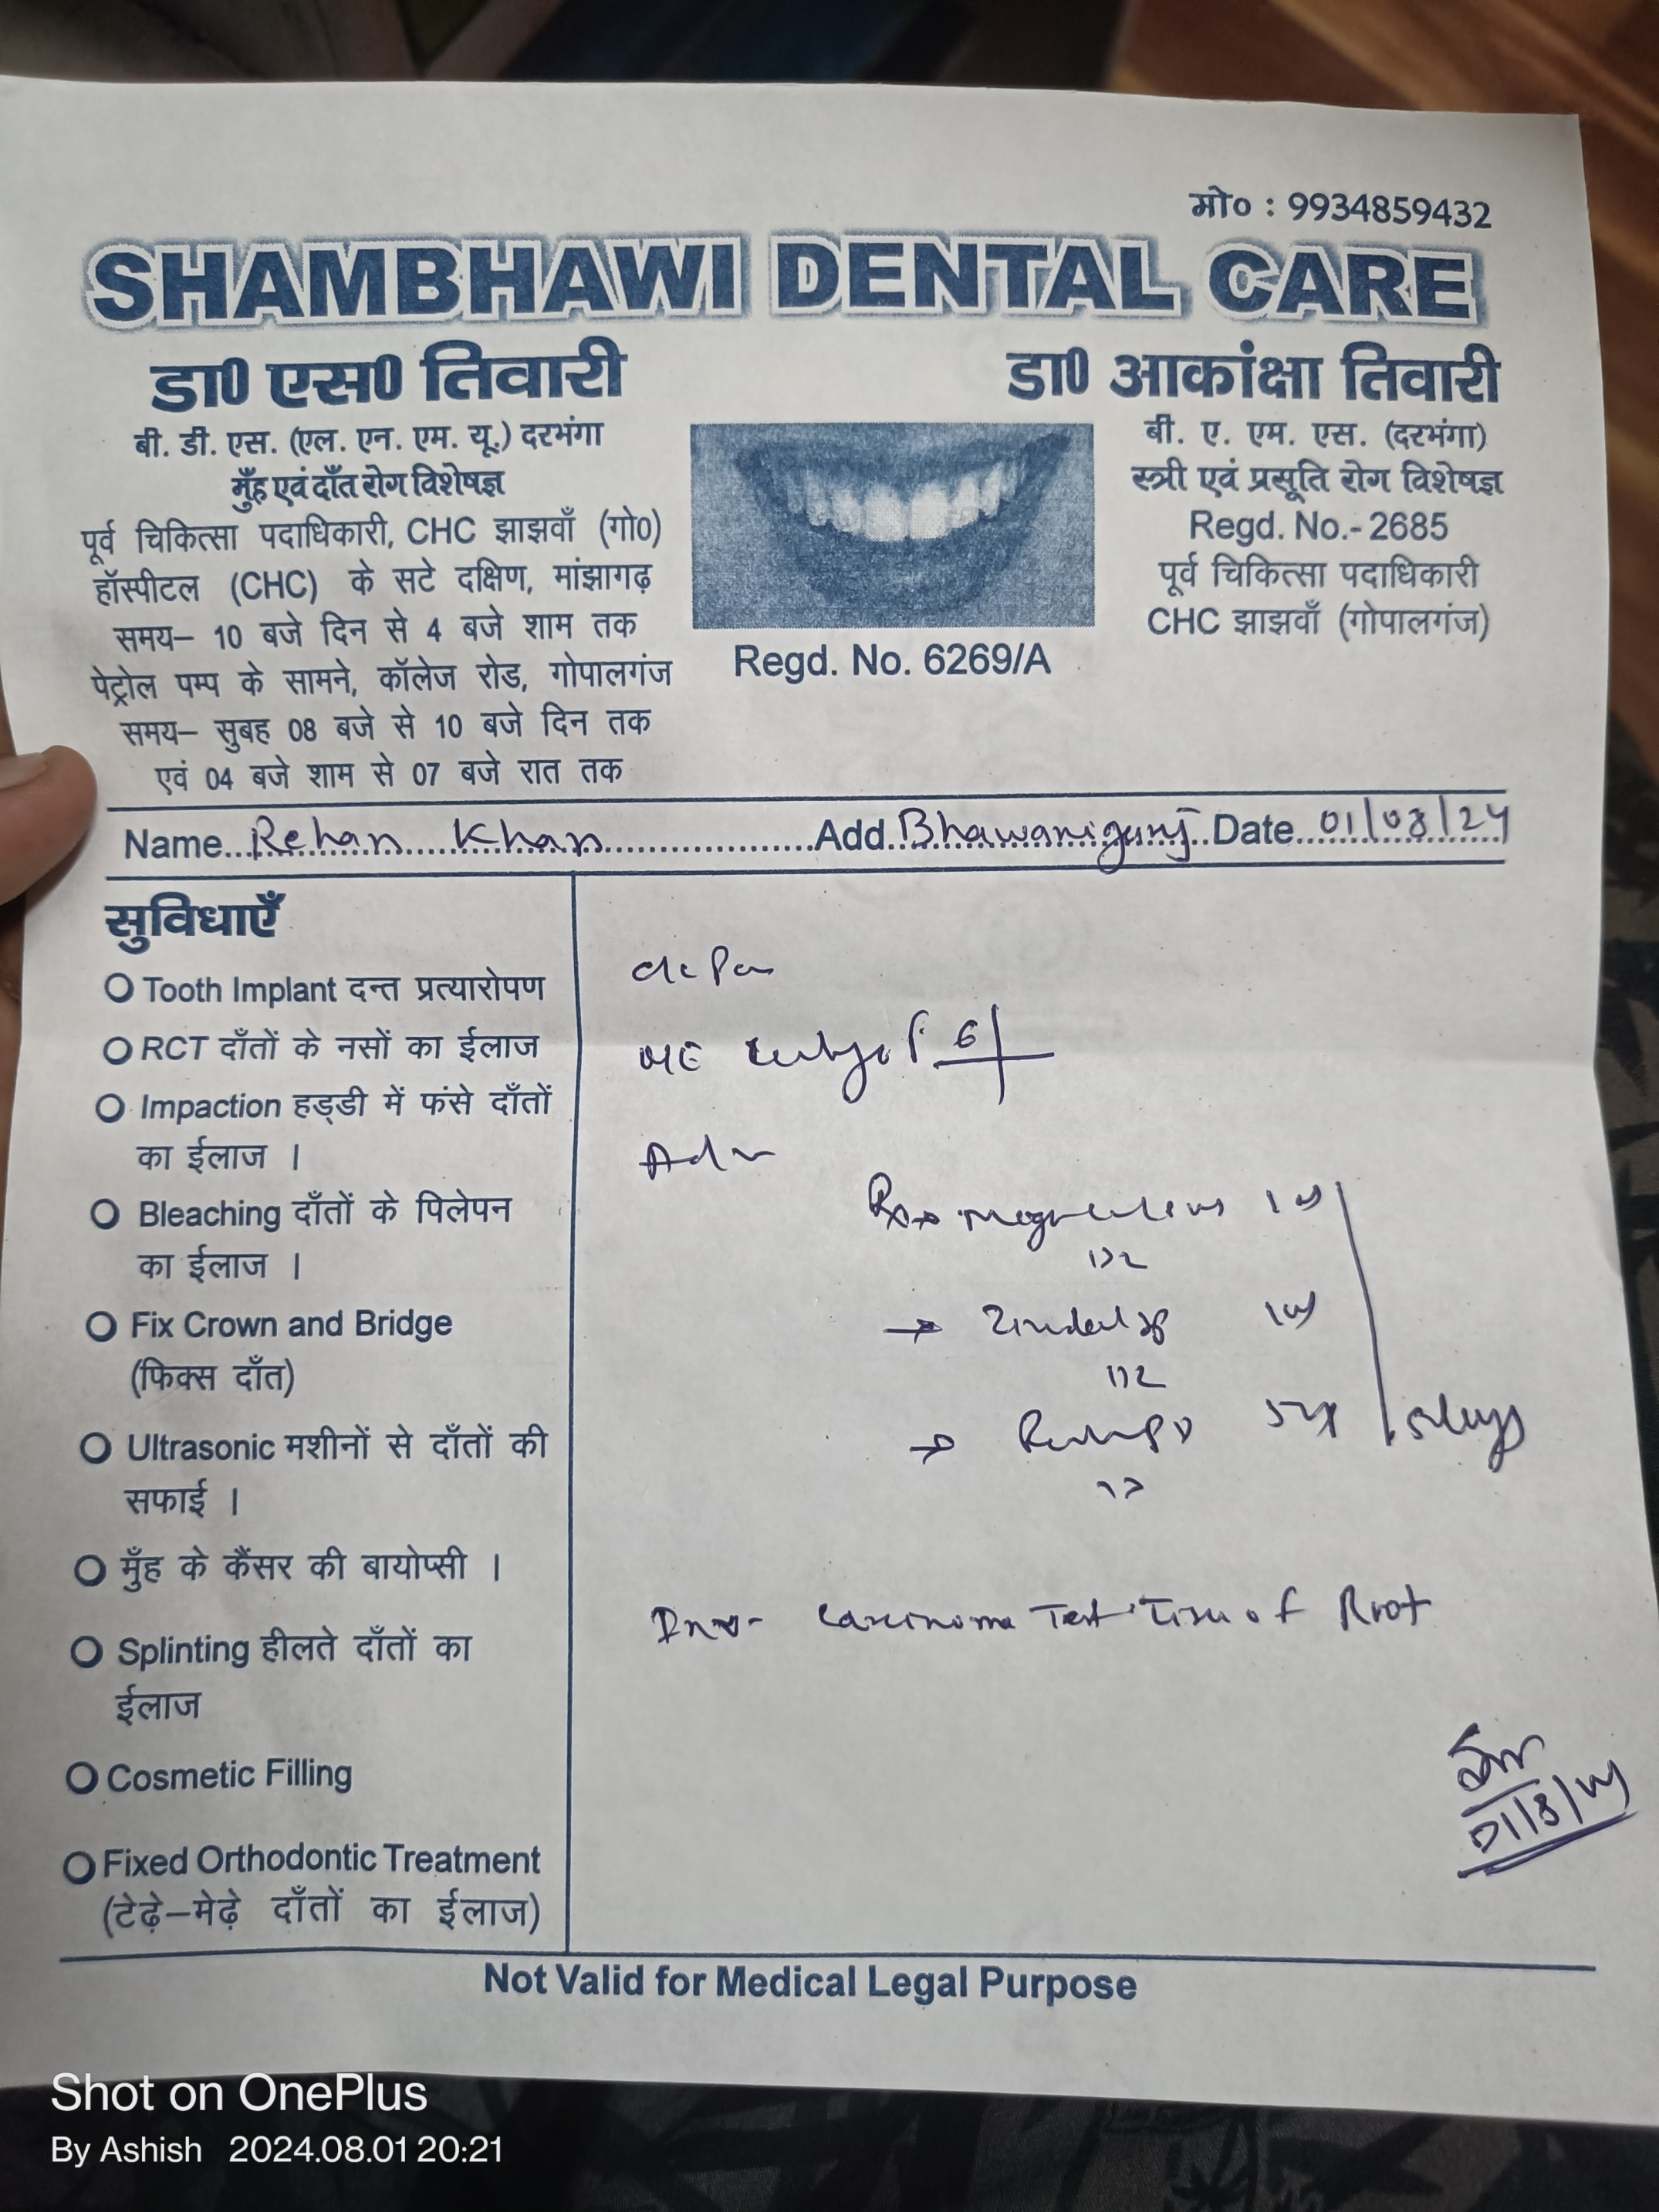 मो० : 9934859432
SHAMBHAWI DENTAL CARE
डा0 एस0 तिवारी
बी. डी. एस. (एल. एन. एम. यू.) दरभंगा
मुँह एवं दाँत रोग विशेषज्ञ
पूर्व चिकित्सा पदाधिकारी, CHC झाझवाँ (गो0)
हॉस्पीटल (CHC) के सटे दक्षिण, मांझागढ़
समय– 10 बजे दिन से 4 बजे शाम तक
पेट्रोल पम्प के सामने, कॉलेज रोड, गोपालगंज
समय– सुबह 08 बजे से 10 बजे दिन तक
एवं 04 बजे शाम से 07 बजे रात तक
Regd. No. 6269/A
डा0 आकांक्षा तिवारी
बी. ए. एम. एस. (दरभंगा)
स्त्री एवं प्रसूति रोग विशेषज्ञ
Regd. No.- 2685
पूर्व चिकित्सा पदाधिकारी
CHC झाझवाँ (गोपालगंज)
Name Rehan Khan Add. Bhawaniganj Date 01/08/24
सुविधाएँ
Tooth Implant दन्त प्रत्यारोपण
RCT दाँतों के नसों का ईलाज
Impaction हड्डी में फंसे दाँतों
का ईलाज ।
Bleaching दाँतों के पिलेपन
का ईलाज ।
Fix Crown and Bridge
(फिक्स दाँत)
Ultrasonic मशीनों से दाँतों की
सफाई ।
मुँह के कैंसर की बायोप्सी ।
Splinting हीलते दाँतों का
ईलाज
Cosmetic Filling
Fixed Orthodontic Treatment
(टेढ़े–मेढ़े दाँतों का ईलाज)
6
Adv
5 days
Inv- Carcinoma Test Tissue of Root
01/8/24
Not Valid for Medical Legal Purpose
Shot on OnePlus
By Ashish 2024.08.01 20:21